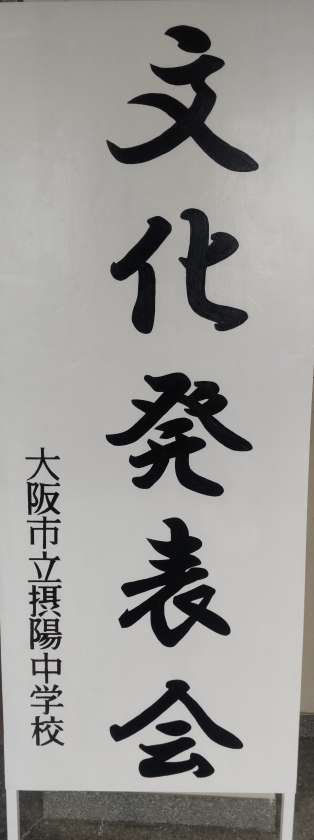 文化発表会
大阪市立摂陽中学校